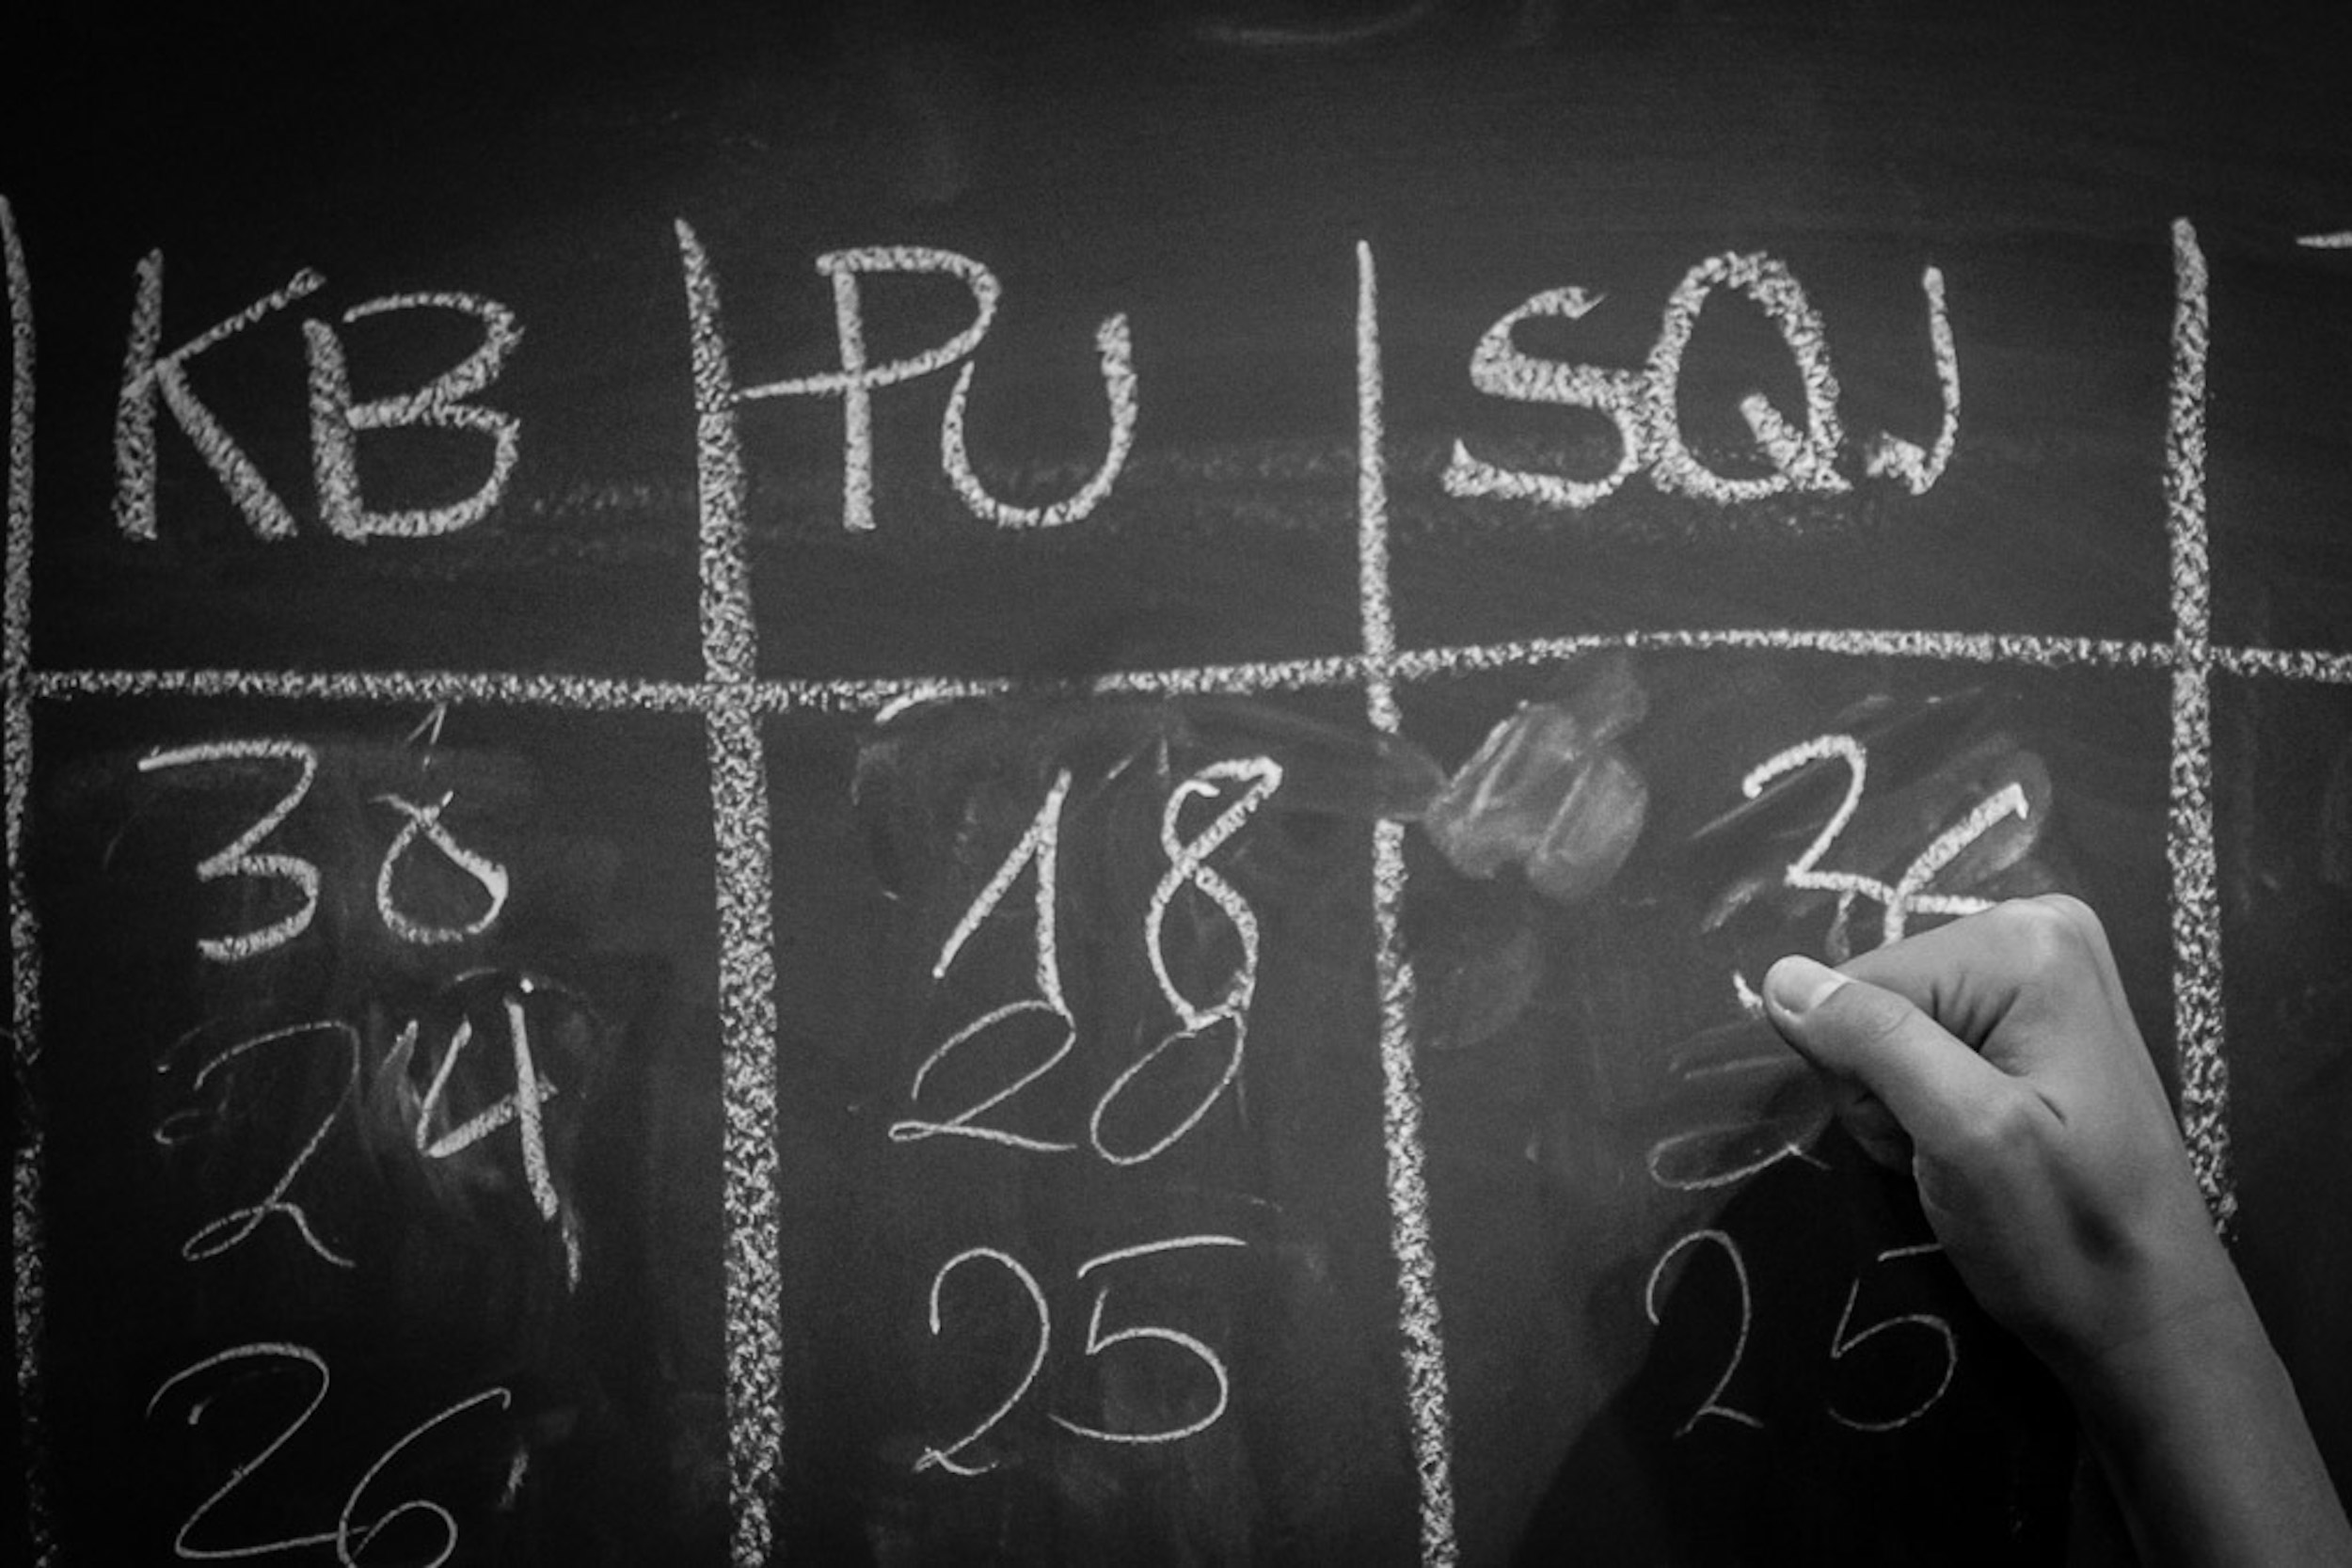 KB PU SQJ
30 18
24 20
26 25 25